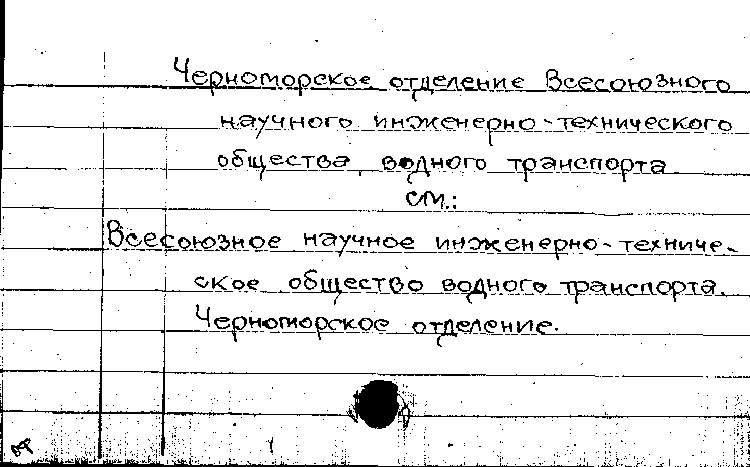 Черноморское отделение Всесоюзного
научного инженерно-технического
общества водного транспорта
см.:
Всесоюзное научное инженерно-техниче-
ское общество водного транспорта.
Черноморское отделение.